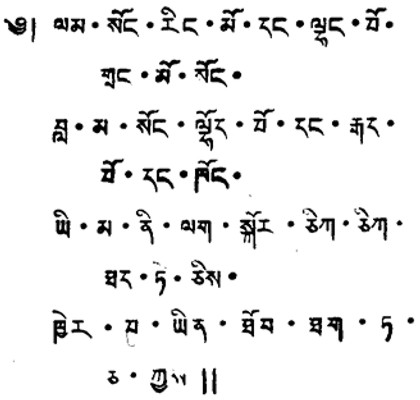 ༄། ལམ་སོང་རིང་མོ་དང་ལྷང་པོ་
གྲང་མོ་སོང་
བླ་མ་སོང་ལྷོར་པོ་དང་རྒད་
པོ་དང་ཁོང་
ཡི་མ་ནི་ལག་སྐོར་ཅིཀ་ཅིཀ་
ཐད་ཏེ་ཅིས་
ཁྱེར་པ་ཡིན་ཐོབ་ཐག་ཏ་
ཅ་ཀྱུས༎